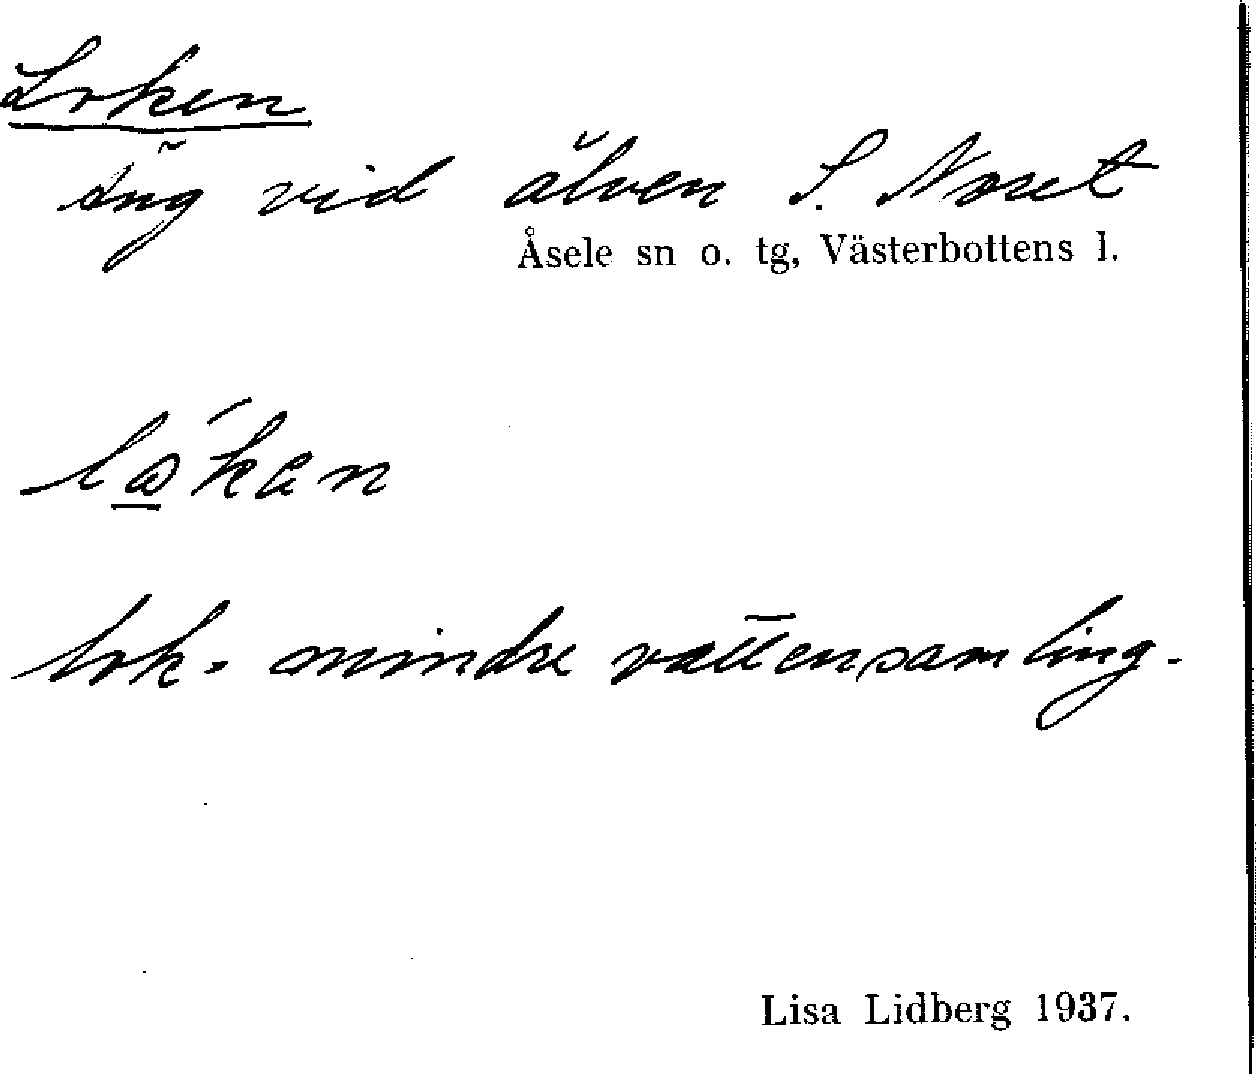 Loken
äng vid älven S. Noret
Åsele sn o. tg, Västerbottens l.
lo̲´kan
lok = mindre vattensamling.
Lisa Lidberg 1937.